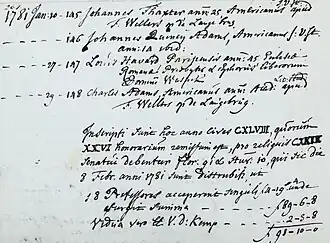 1781 Jan. 10 - 145 Johannes Thaxter ann: 25 Americanus apud
F. Wellers op de Lange brug
146 Johannes Quincy Adams, Americanus
ann: 14 ibid:
- 27 - 147 Louis Havard Parisensis ann: 45 Ecclesiae
Romanae Presbyter & Ephorus liberorum
Domus
- 29 - 148 Charles Adams, Americanus ann: Stud: apud
F. Wellers op de Langebrug
Inscripti sunt hoc anno Cives CXLVIII, quorum
XXVI honorarium remissum est, pro reliquis CXXII
Senatui debentur flor. 91 & stuv. 10, qui sic die
8 Febr. anni 1781 sunt distributi, ut
18 Professores acceperint singuli unde
surgit summa - - - f 89-6-8
Vidua v: d: Kemp - - - 2-3-8
f 91-10-0